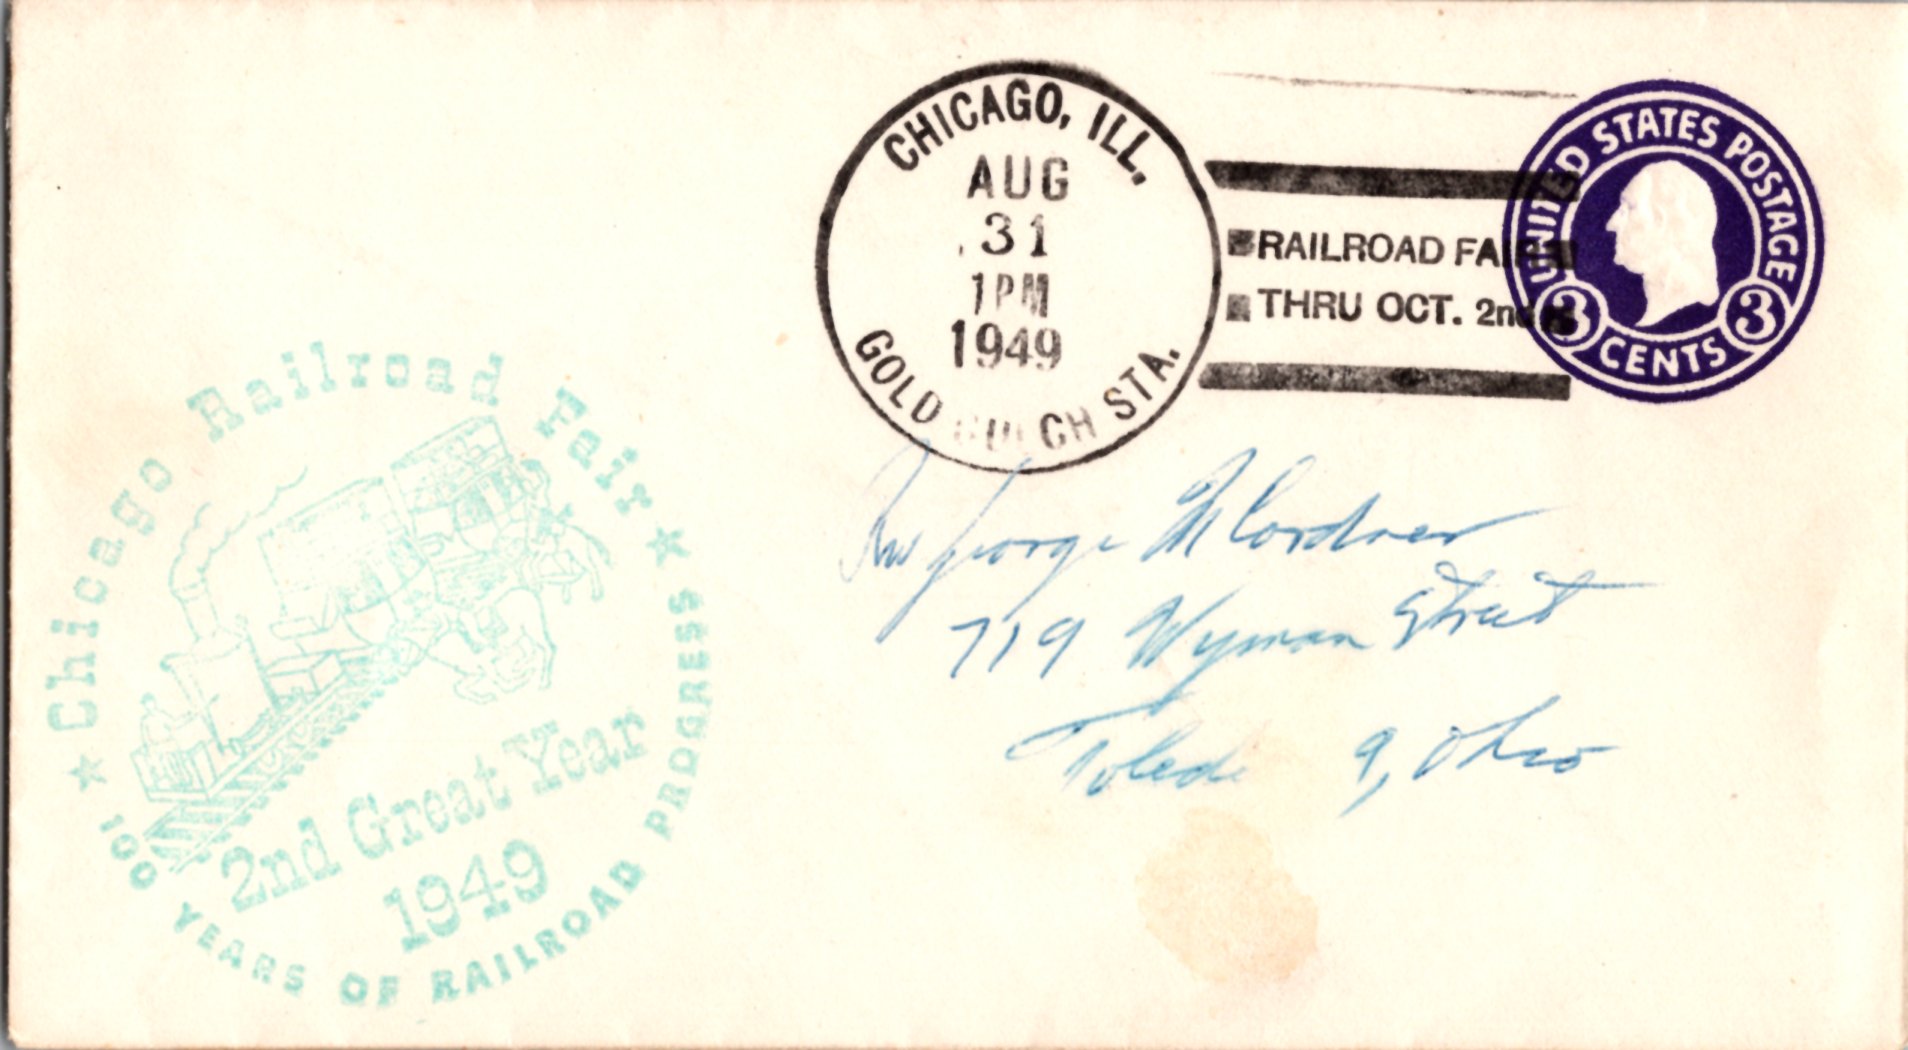 CHICAGO, ILL.
AUG
31
1 PM
1949
GOLD GULCH STA.
RAILROAD FAIR
THRU OCT. 2nd
UNITED STATES POSTAGE
3 CENTS 3
Chicago Railroad Fair
2nd Great Year
1949
100 YEARS OF RAILROAD PROGRESS
George M Cordner
719 Wyman Street
Toledo 9, Ohio